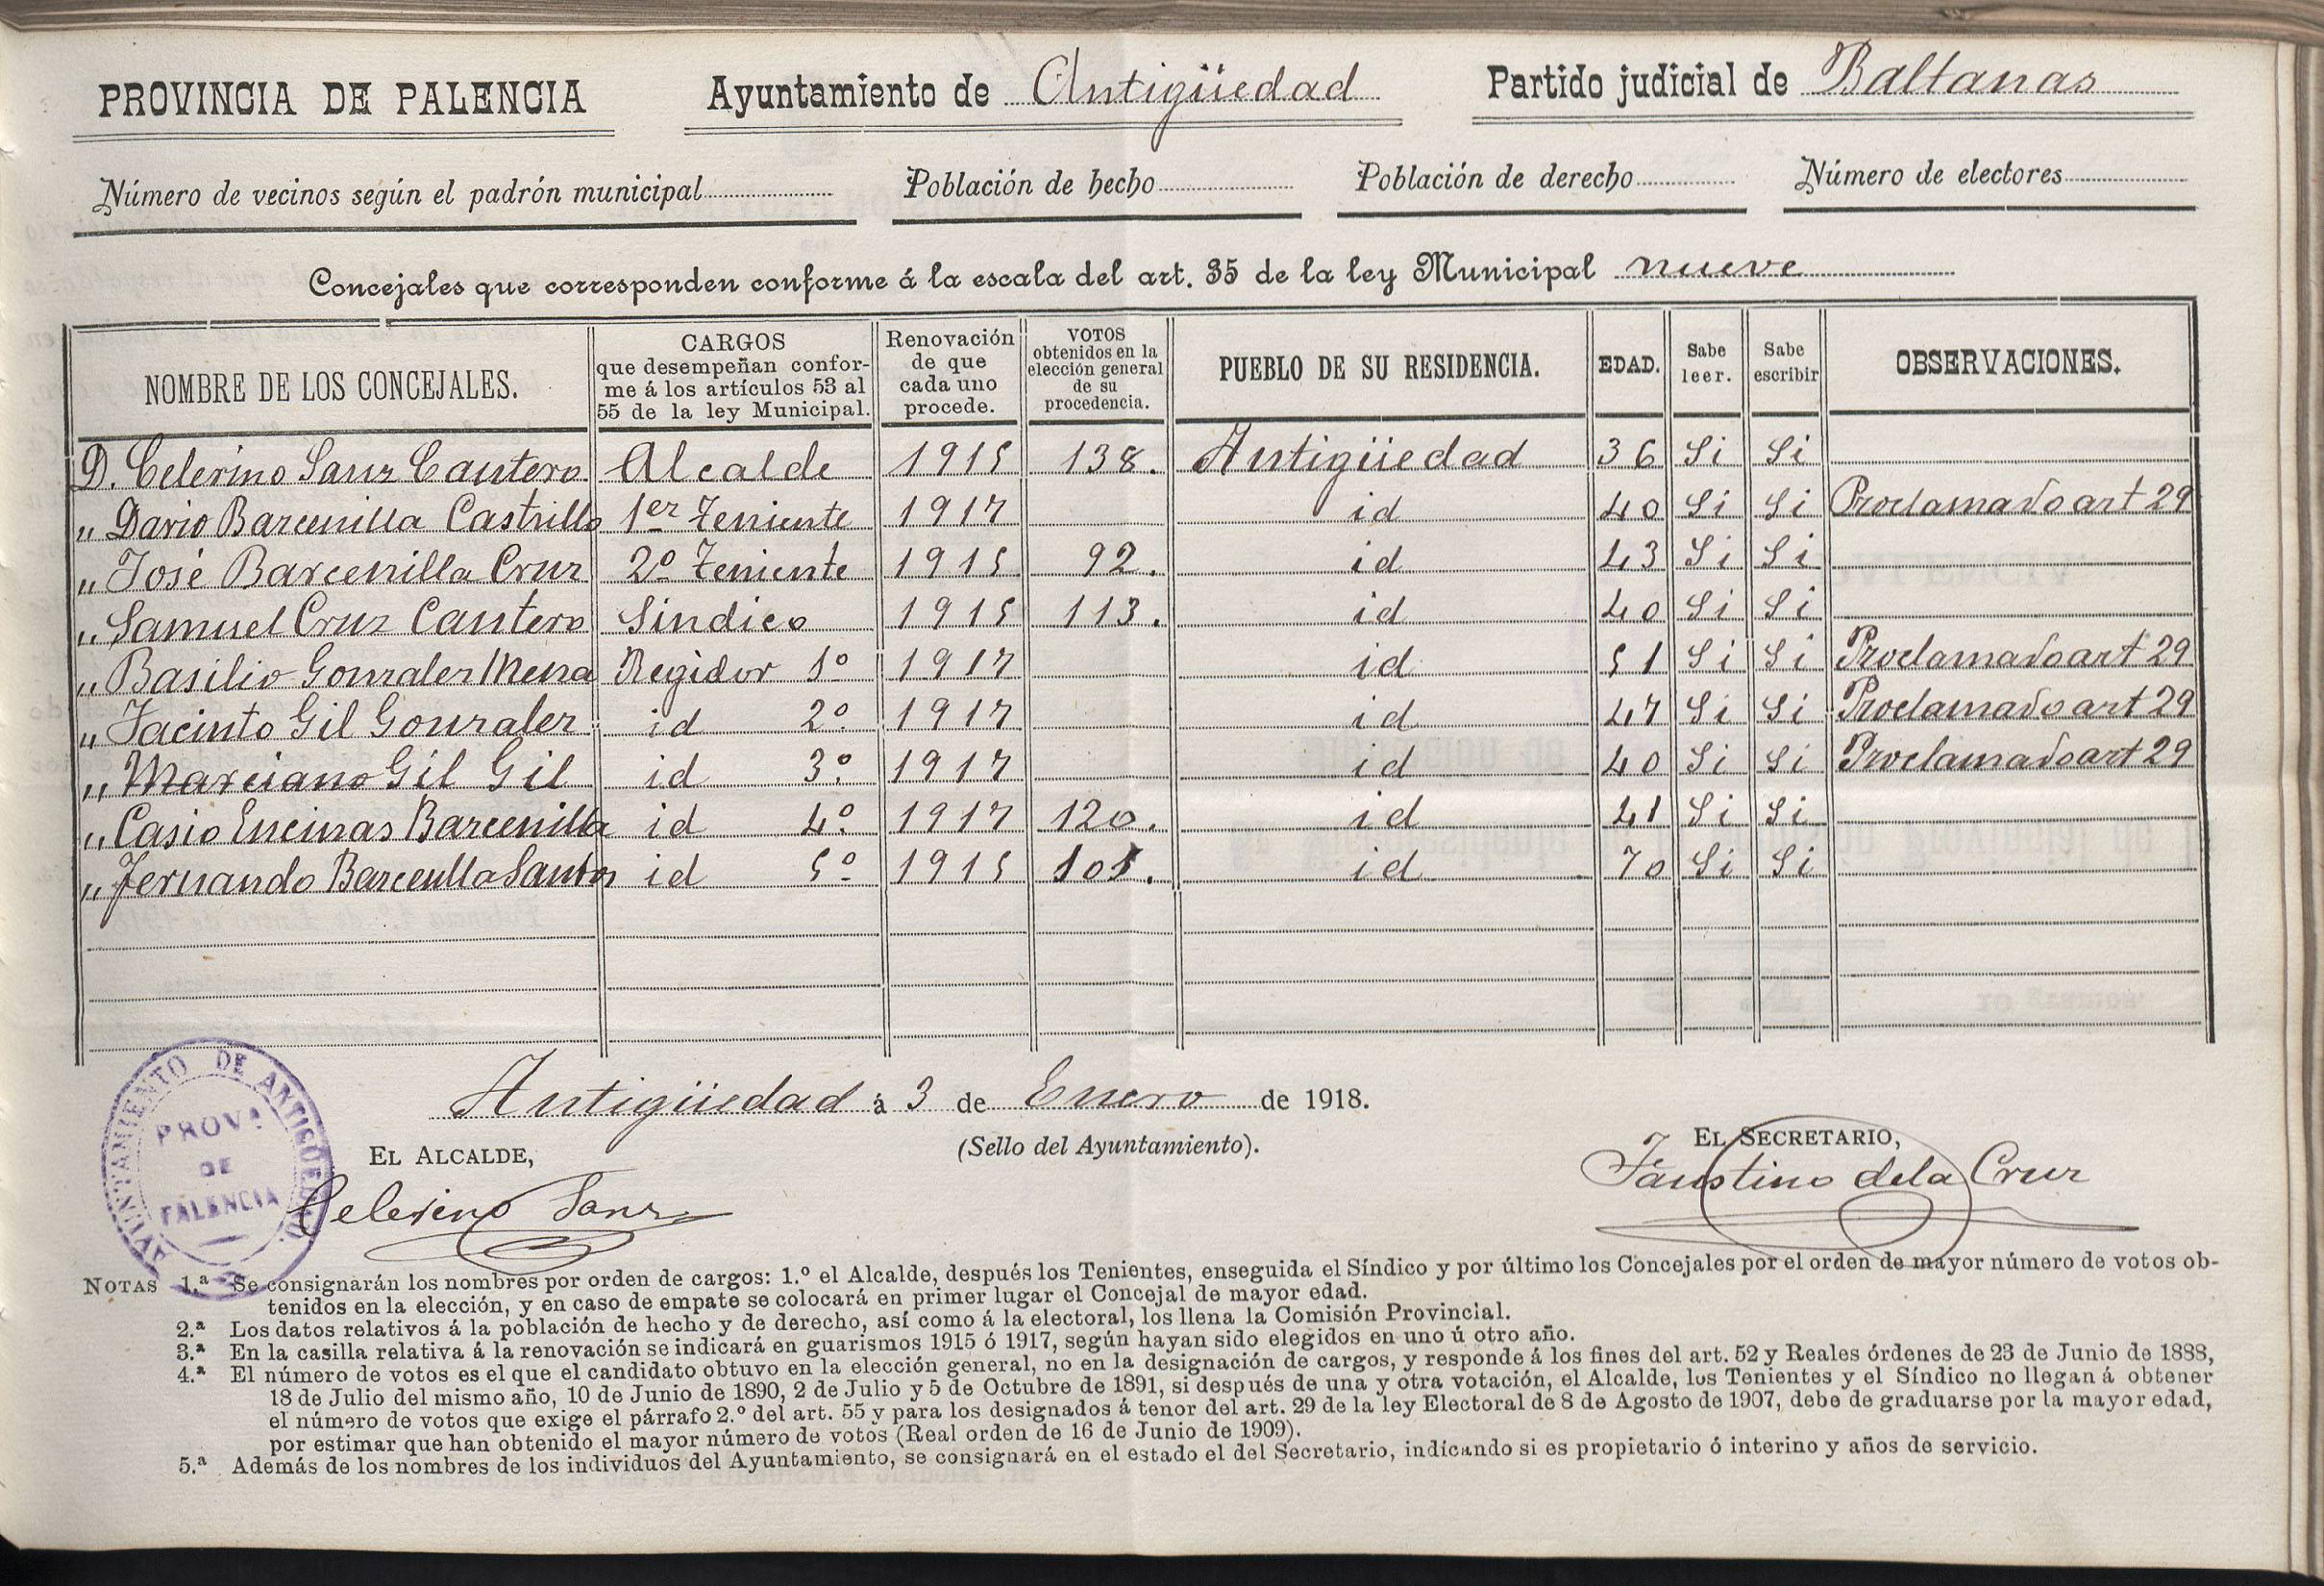 PROVINCIA DE PALENCIA Ayuntamiento de Antigüedad Partido judicial de Baltanas
Número de vecinos según el padrón municipal Población de hecho Población de derecho Número de electores
Concejales que corresponden conforme á la escala del art. 35 de la ley Municipal nueve
NOMBRE DE LOS CONCEJALES. CARGOS que desempeñan conforme á los artículos 53 al 55 de la ley Municipal. Renovación de que cada uno procede. VOTOS obtenidos en la elección general de su procedencia. PUEBLO DE SU RESIDENCIA. EDAD. Sabe leer. Sabe escribir OBSERVACIONES.
D. Celerino Sanz Cantero Alcalde 1915 138. Antigüedad 36 Si Si
„ Dario Barcenilla Castrillo 1er Teniente 1917 id 40 Si Si Proclamado art 29
„ José Barcenilla Cruz 2º Teniente 1915 92. id 43 Si Si
„ Samuel Cruz Cantero Sindico 1915 113. id 40 Si Si
„ Basilio Gonzalez Mena Regidor 1º 1917 id 51 Si Si Proclamado art 29
„ Jacinto Gil Gonzalez id 2º 1917 id 47 Si Si Proclamado art 29
„ Marciano Gil Gil id 3º 1917 id 40 Si Si Proclamado art 29
„ Casio Encinas Barcenilla id 4º 1917 120. id 41 Si Si
„ Fernando Barcenilla Santos id 5º 1915 101. id 70 Si Si
Antigüedad á 3 de Enero de 1918.
EL ALCALDE, (Sello del Ayuntamiento). EL SECRETARIO,
Celerino Sanz Faustino de la Cruz
AYUNTAMIENTO DE ANTIGÜEDAD
PROVA
DE
PALENCIA
NOTAS 1.ª Se consignarán los nombres por orden de cargos: 1.º el Alcalde, después los Tenientes, enseguida el Síndico y por último los Concejales por el orden de mayor número de votos ob-
tenidos en la elección, y en caso de empate se colocará en primer lugar el Concejal de mayor edad.
2.ª Los datos relativos á la población de hecho y de derecho, así como á la electoral, los llena la Comisión Provincial.
3.ª En la casilla relativa á la renovación se indicará en guarismos 1915 ó 1917, según hayan sido elegidos en uno ú otro año.
4.ª El número de votos es el que el candidato obtuvo en la elección general, no en la designación de cargos, y responde á los fines del art. 52 y Reales órdenes de 23 de Junio de 1888,
18 de Julio del mismo año, 10 de Junio de 1890, 2 de Julio y 5 de Octubre de 1891, si después de una y otra votación, el Alcalde, los Tenientes y el Síndico no llegan á obtener
el número de votos que exige el párrafo 2.º del art. 55 y para los designados á tenor del art. 29 de la ley Electoral de 8 de Agosto de 1907, debe de graduarse por la mayor edad,
por estimar que han obtenido el mayor número de votos (Real orden de 16 de Junio de 1909).
5.ª Además de los nombres de los individuos del Ayuntamiento, se consignará en el estado el del Secretario, indicando si es propietario ó interino y años de servicio.